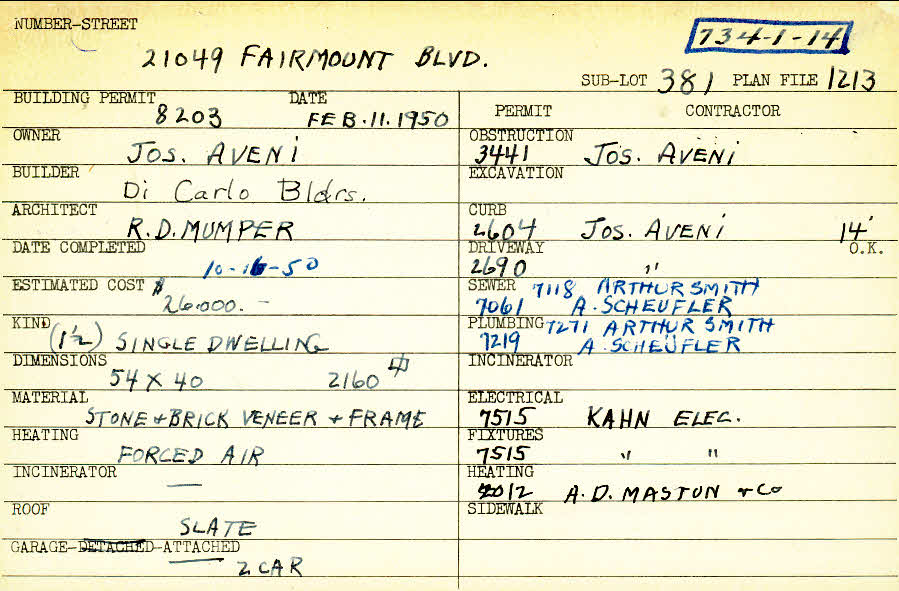 NUMBER-STREET
734-1-14
21049 FAIRMOUNT BLVD.
SUB-LOT 381 PLAN FILE 1213
BUILDING PERMIT DATE
8203 FEB.11.1950
OWNER
JOS. AVENI
BUILDER
Di Carlo Bldrs.
ARCHITECT
R.D.MUMPER
DATE COMPLETED
10-16-50
ESTIMATED COST $
26.000.-
KIND
(1½) SINGLE DWELLING
DIMENSIONS
54 X 40 2160
MATERIAL
STONE + BRICK VENEER + FRAME
HEATING
FORCED AIR
INCINERATOR
—
ROOF
SLATE
GARAGE-DETACHED-ATTACHED
2 CAR
PERMIT CONTRACTOR
OBSTRUCTION
3441 JOS. AVENI
EXCAVATION
CURB
2604 JOS. AVENI 14'
DRIVEWAY O.K.
2690 "
SEWER 7118 ARTHUR SMITH
7061 A. SCHEUFLER
PLUMBING 7271 ARTHUR SMITH
7219 A. SCHEUFLER
INCINERATOR
ELECTRICAL
7515 KAHN ELEC.
FIXTURES
7515 " "
HEATING
2012 A.D. MASTON + Co
SIDEWALK